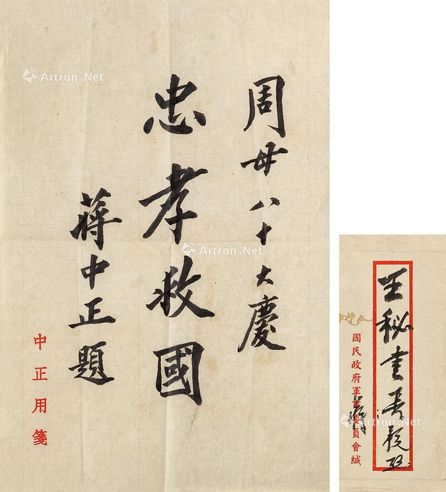 周母八十大慶
忠孝救國
蔣中正題
中正用箋
王秘書長啟
國民政府軍事委員會緘
Artron.Net
Artron.Net
Artron.Net